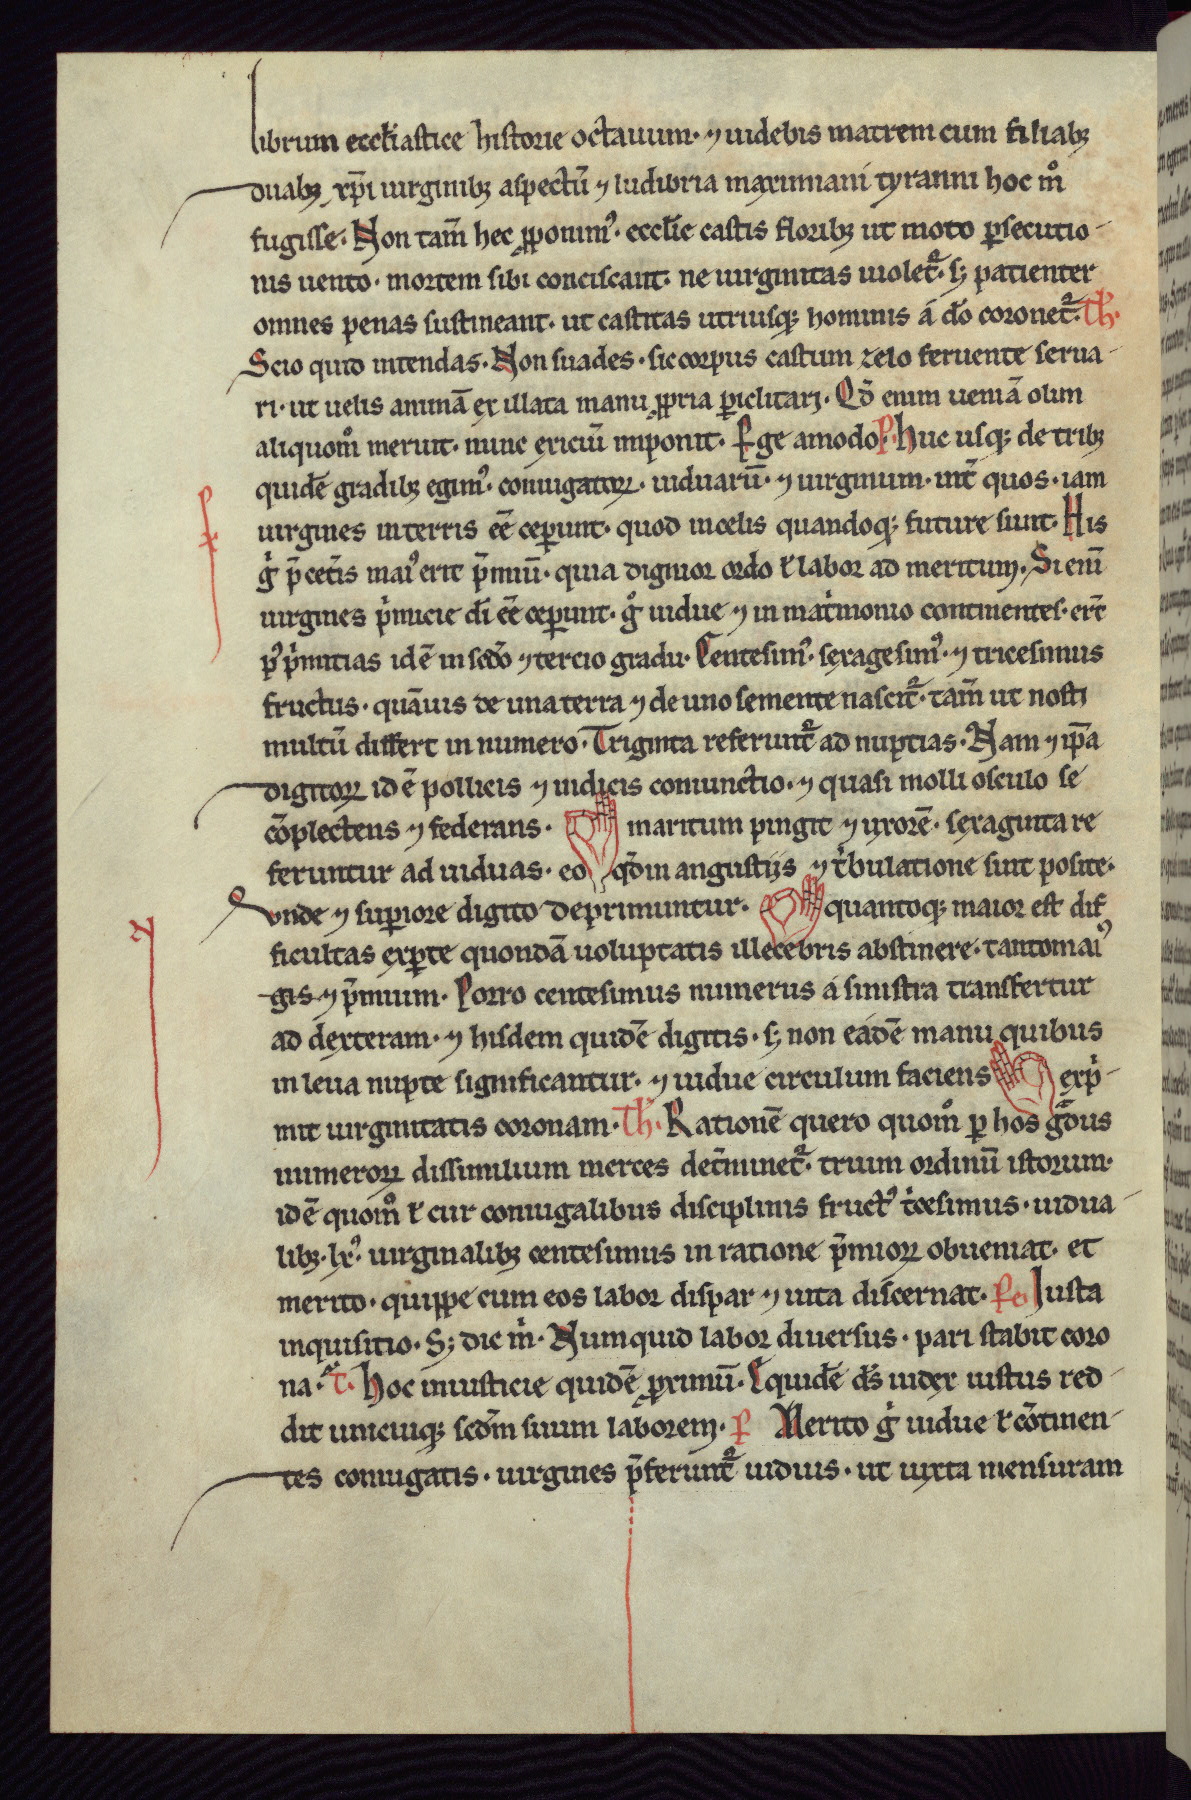 librum eccľiastice historie octauum· ⁊ uidebis matrem cum filiabꝫ
duabꝫ xp̄i uirginibꝫ aspectū ⁊ ludibria maximiani tyranni hoc mͦ
fugisse· Non tam̄ hec ꝓponimꝰ· eccľie castis floribꝫ ut moto ꝑsecutio-
nis uento· mortem sibi consciscant· ne uirginitas uioletᷣ· sꝫ patienter
omnes penas sustineant· ut castitas utriusqꝫ hominis á do̅ coronetᷣ· Th̄·
Scio quid intendas· Non suades· sic corpus castum zelo feruente serua-
ri· ut uelis animā ex illata manu ꝓpria ꝑiclitari· Qd̄ enim ueniā olim
aliquom̊ meruit· nunc exiciū imponit· Ege amodo· P· Huc usqꝫ de tribꝫ
quidē gradibꝫ egimꝰ· coniugatoꝝ· uiduarū· ⁊ uirginum· int̄ quos· iam
uirgines in terris ee̅ ceperunt· quod in celis quandoqꝫ future sunt· His
g̊ p̄ cet̄is maiꝰ erit p̄miū· quia dignior ordo ł labor ad meritum· Si enī
uirgines p̍micie di̅ ee̅ ceperunt· g̊ uidue ⁊ in mat̍monio continentes· er̄t
pꝰ p̍mitias id ē in scd̄o ⁊ tercio gradu· Centesimꝰ· sexagesimꝰ· ⁊ tricesimus
fructus· quāuis de una terra ⁊ de uno semente nascitᷣ· tam̄ ut nosti
multū differt in numero· Triginta referuntᷣ ad nuptias· Nam ⁊ ip̄a
digitoꝝ id ē pollicis ⁊ indicis coniunctio· ⁊ quasi molli osculo se
cōplectens ⁊ federans· maritum pingit ⁊ uxorē· sexaginta re
feruntur ad uiduas· eo qd̄ in angustijs ⁊ t̍bulatione sint posite·
vnde ⁊ superiore digito deprimuntur· quantoqꝫ maior est dif
ficultas exꝑte quondā uoluptatis illecebris abstinere· tanto maiꝰ
gis ⁊ p̄mium· Porro centesimus numerus á sinistra transfertur
ad dexteram· ⁊ hisdem quidē digitis· sꝫ non eádē manu quibus
in leua nupte significantur· ⁊ uidue circulum faciens exp̍-
mit uirginitatis coronam· Th̄· Rationē quero quom̊ ꝑ hos gᷓdus
numeroꝝ dissimilium merces det̄minetᷣ· trium ordinū istorum·
id ē quom̊ ł cur coniugalibus disciplinis fructꝰ t̍cesimus· uidua-
libꝫ· lxꝰ· uirginalibꝫ centesimus in ratione p̄mioꝝ obueniat· et
merito· quippe cum eos labor dispar ⁊ uita discernat· Pe· Iusta
inquisitio· Sꝫ dic m̍· Numquid labor diuersus· pari stabit coro
na· T· Hoc iniusticie quidē ꝓximū· Equidē ds̄ iudex iustus red-
dit unicuiqꝫ scd̄m suum laborem· P Merito g̊ uidue ł cōtinen-
tes coniugatis· uirgines p̄feruntᷣ uiduis· ut iuxta mensuram